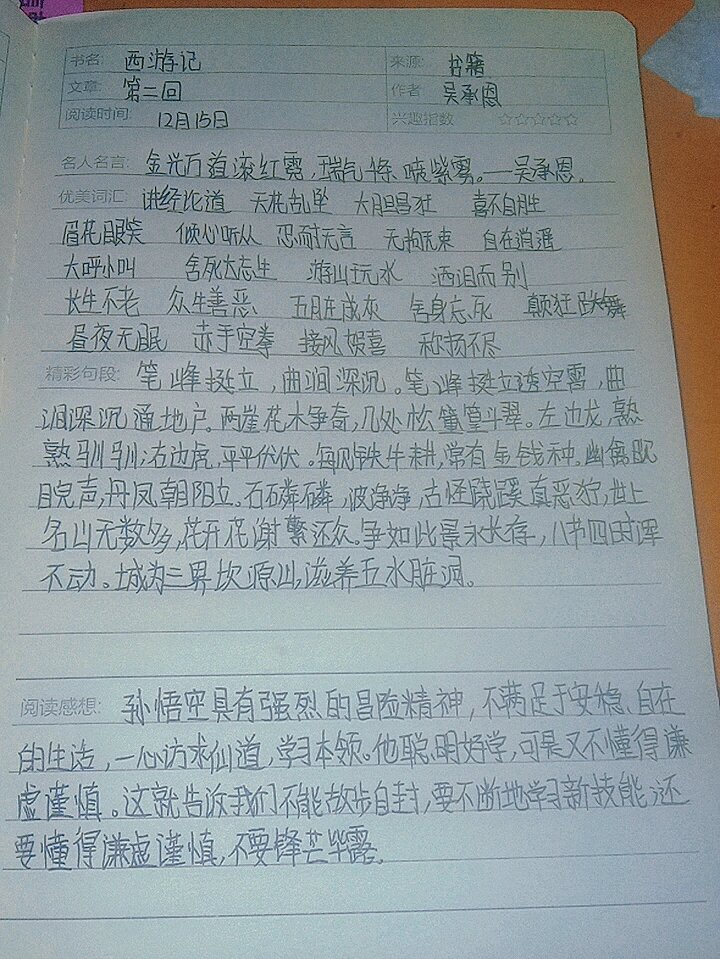 书名: 西游记 来源: 书籍
文章: 第二回 作者 吴承恩
阅读时间: 12月15日 兴趣指数 ☆☆☆☆☆
名人名言: 金光万道滚红霓,瑞气条喷紫雾。——吴承恩。
优美词汇 讲经论道 天花乱坠 大胆昌狂 喜不自胜
眉花眼笑 倾心听从 忍耐无言 无拘无束 自在逍遥
大呼小叫 舍死忘生 游山玩水 洒泪而别
长生不老 众生善恶 五月在成灰 舍身忘死 颠狂跌舞
昼夜无眠 赤手空拳 接风贺喜 称扬不尽
精彩句段: 笔峰挺立,曲涧深沉。笔峰挺立透空霄,曲
涧深沉通地户。两崖花木争奇,几处松篁斗翠。左边龙,熟
熟驯驯;右边虎,平平伏伏。每见铁牛耕,常有金钱种。幽禽
睍声,丹凤朝阳立。石磷磷,波净净,古怪跷蹊真恶狞,世上
名山无数多,花开花谢繁还众。争如此景永长存,八节四时浑
不动。城为三界坎源山,滋养五水脏洞。
阅读感想: 孙悟空具有强烈的冒险精神,不满足于安稳、自在
的生活,一心访求仙道,学习本领。他聪明好学,可是又不懂得谦
虚谨慎。这就告诉我们不能故步自封,要不断地学习新技能;还
要懂得谦虚谨慎,不要锋芒毕露。